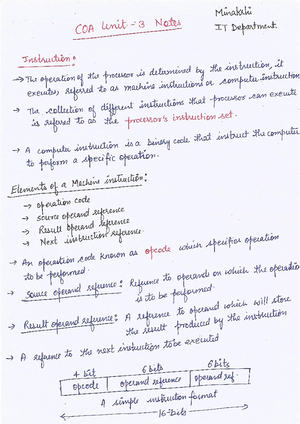 COA Unit - 3 Notes
Minakshi
IT Department
Instruction:
→ The operation of the processor is determined by the instruction, it
executes, referred to as machine instructions or computer instructions
→ The collection of different instructions that processor can execute
is referred to as the processor's instruction set.
→ A computer instruction is a binary code that instruct the computer
to perform a specific operation.
Elements of a Machine instruction:
→ operation code
→ source operand reference
→ Result operand reference
→ Next instruction reference.
→ An operation code known as opcode which specifies operation
to be performed.
→ Source operand reference: Reference to operands on which the operation
is to be performed.
→ Result operand reference: A reference to operand which will store
the result produced by the instruction
→ A reference to the next instruction to be executed
4 bit 6 bits 6 bits
opcode operand reference operand ref.
A simple instruction format
16-bits